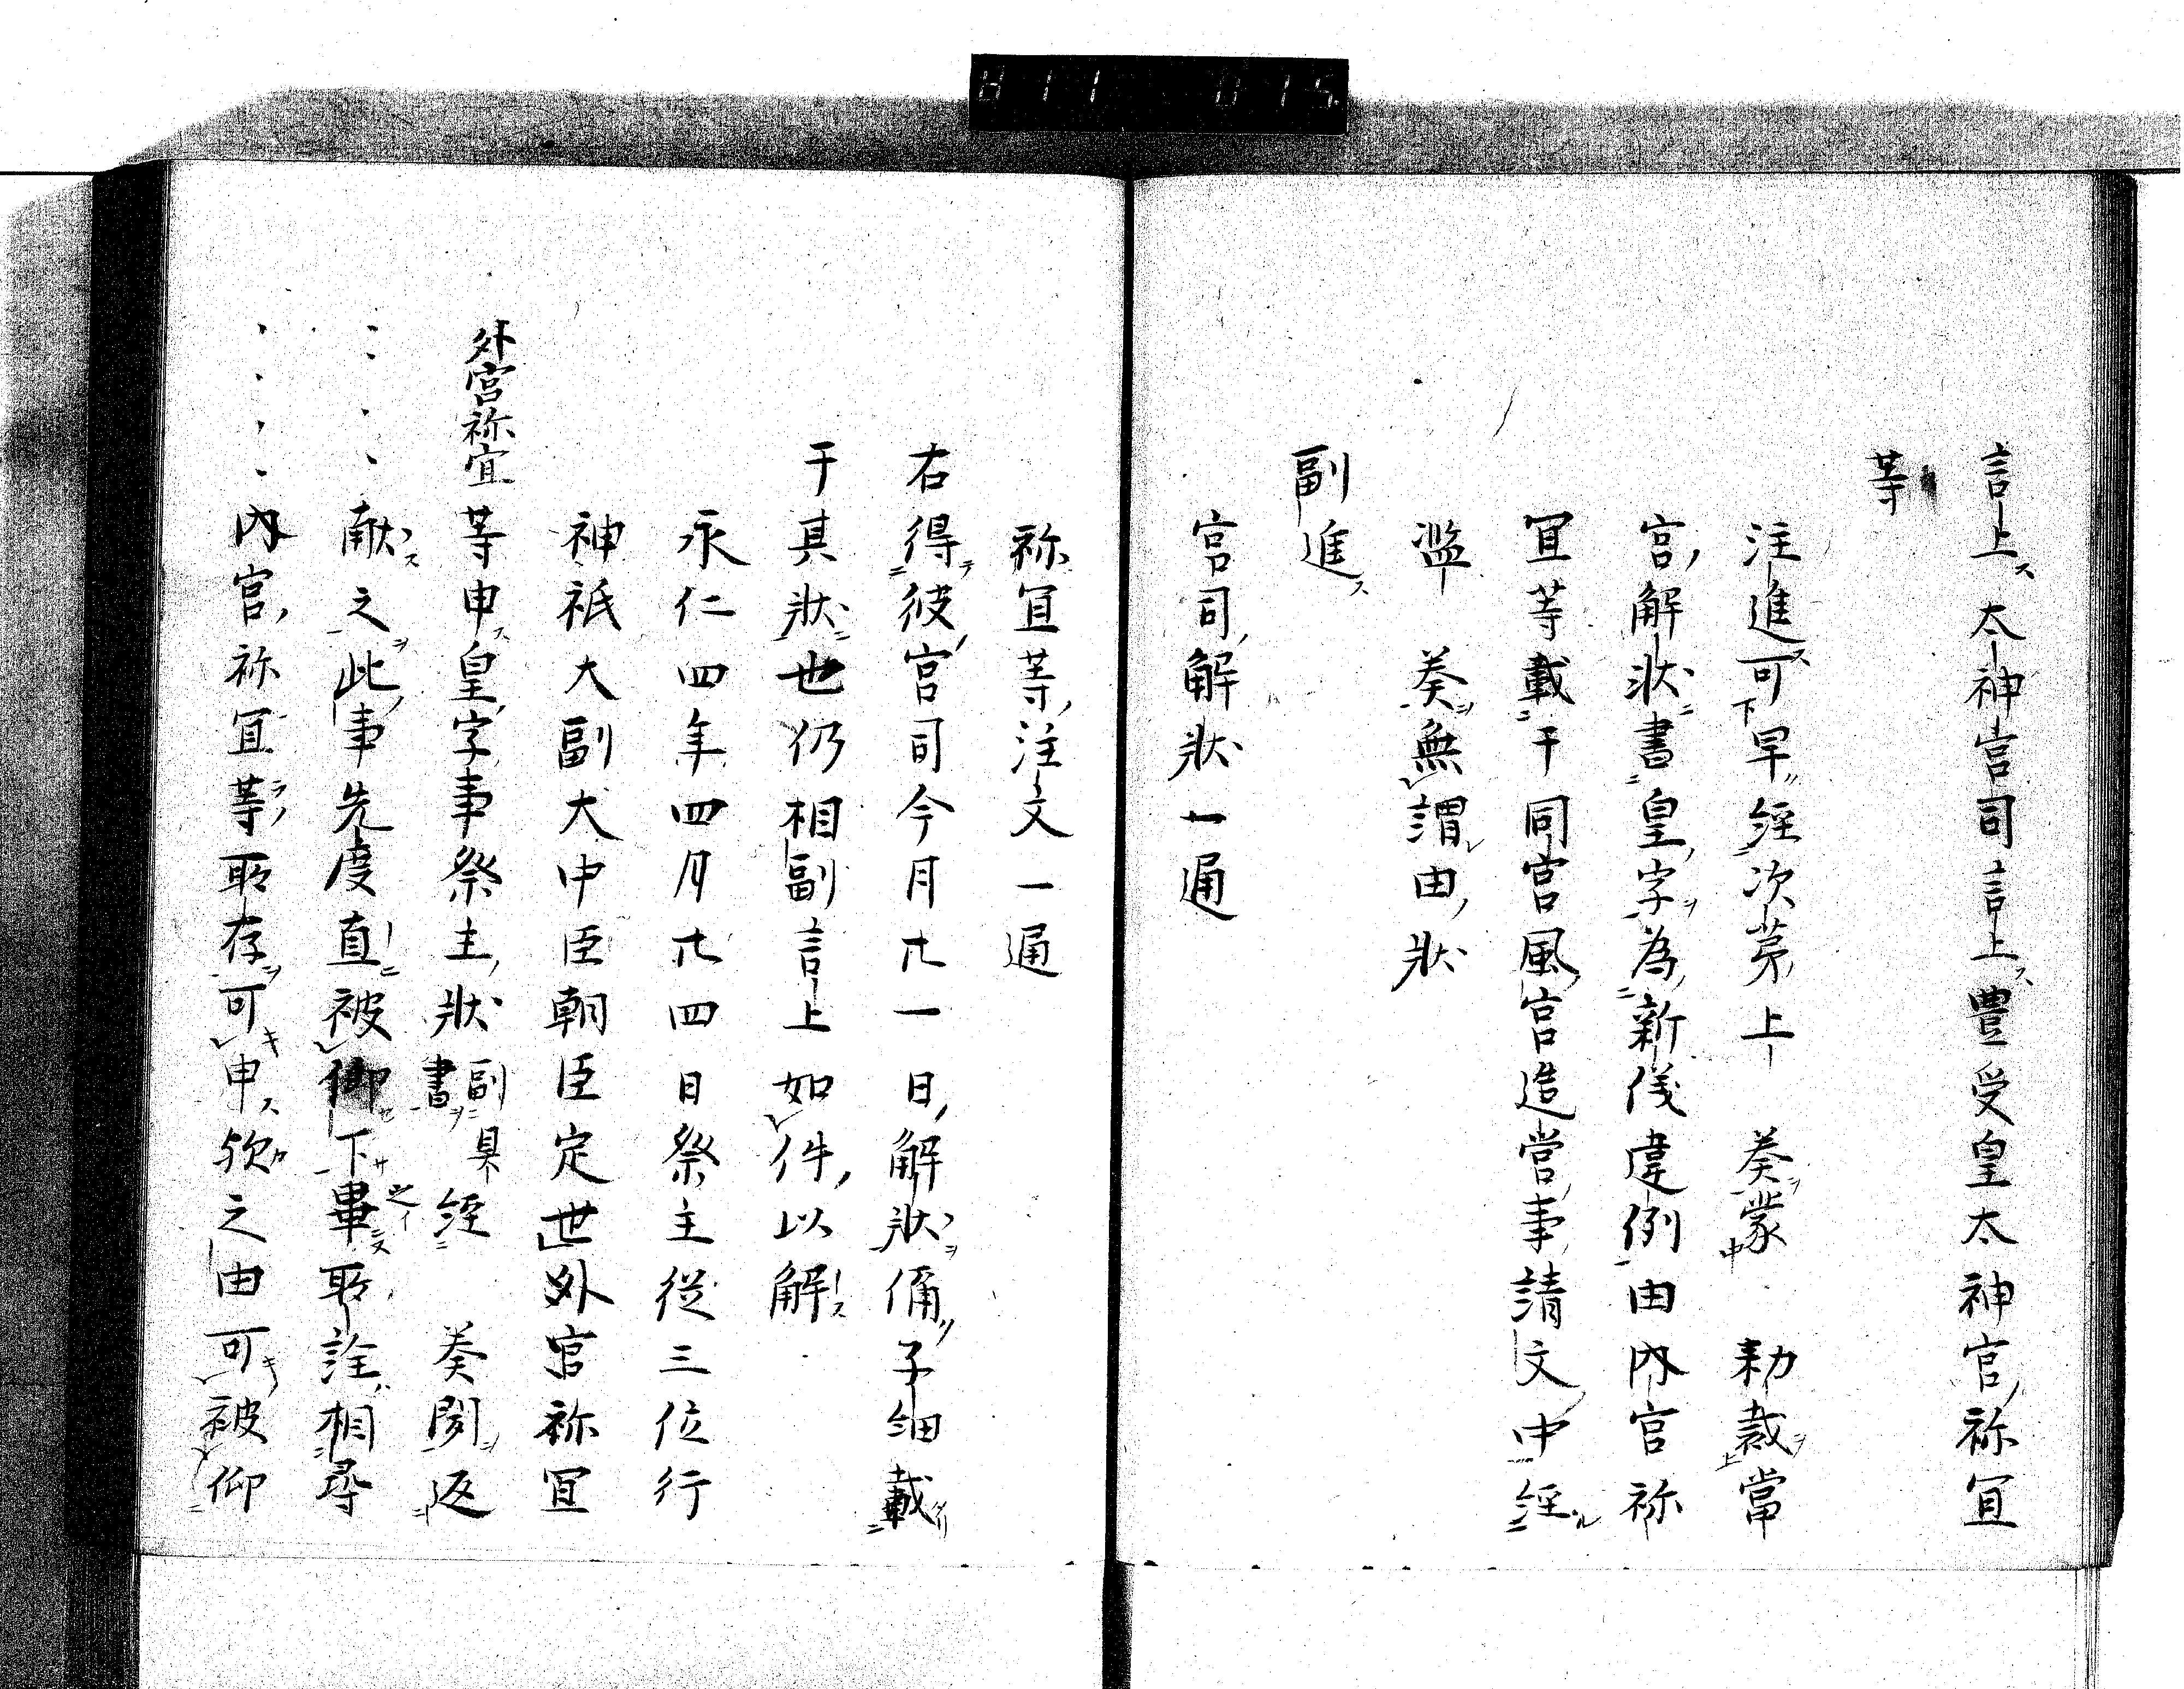 言上ス太神宮司言上ス豊受皇太神宮祢冝
等
注進ス可下早経次苐上奏ヲ蒙中勅裁ヲ上當
宮解状ニ書皇字ヲ為新儀違例由内宮祢
冝等載于同宮風宮造営事請文中経ル
濫奏ヲ無謂由状
副進ス
宮司解状一通
祢冝等注文一通
右得彼宮司今月廿一日解状ヲ偁子細載
于其状ニ也仍相副言上如件以解
永仁四年四月廿四日祭主従三位行
神祇大副大中臣朝臣定世外宮祢冝
外宮祢宜等申ス皇字事祭主状副具書ヲ経奏聞ヲ返
献ス之ヲ此事先度直ニ被仰下畢所詮相尋
内宮祢冝等所存ヲ可キ申ス欤之由可キ被仰